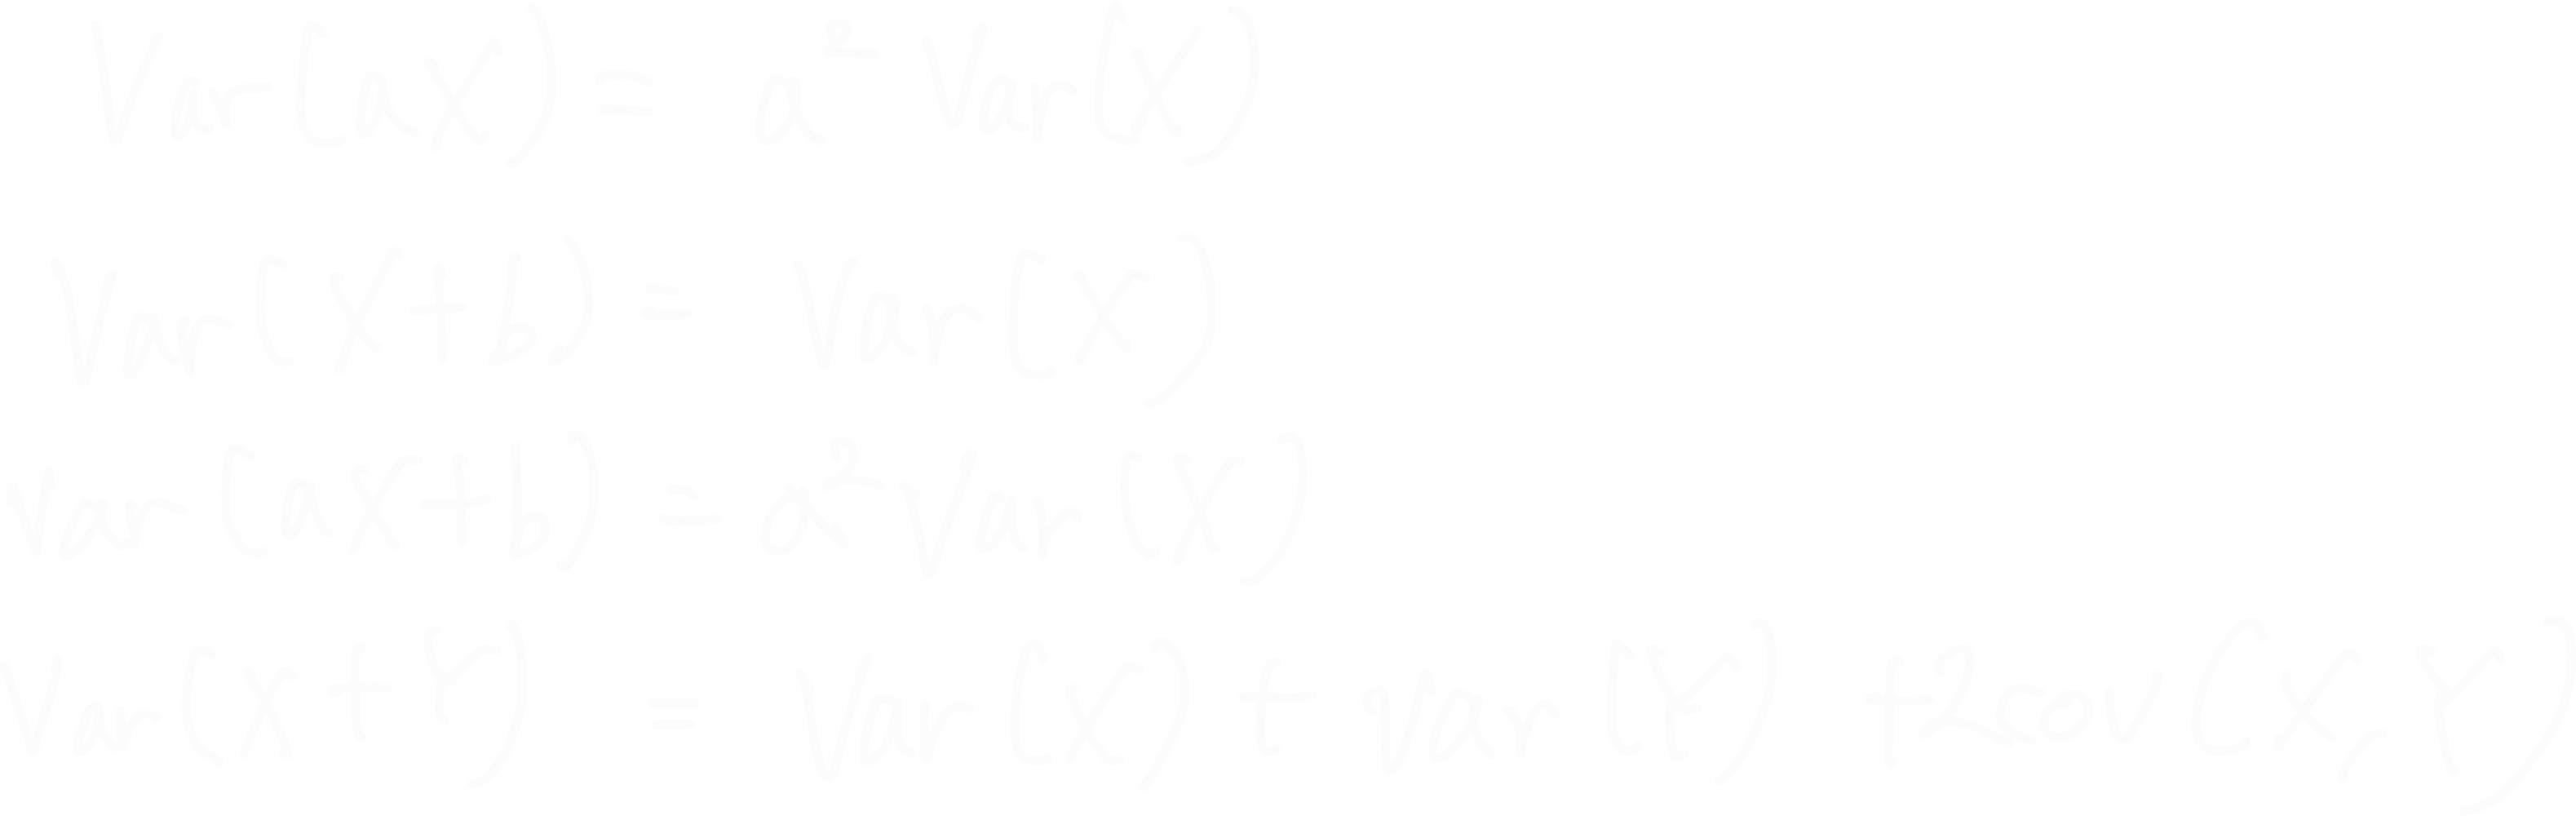 Var(aX) = a² Var(X)
Var(X+b) = Var(X)
Var(aX+b) = a² Var(X)
Var(X+Y) = Var(X) + Var(Y) +2cov(X,Y)